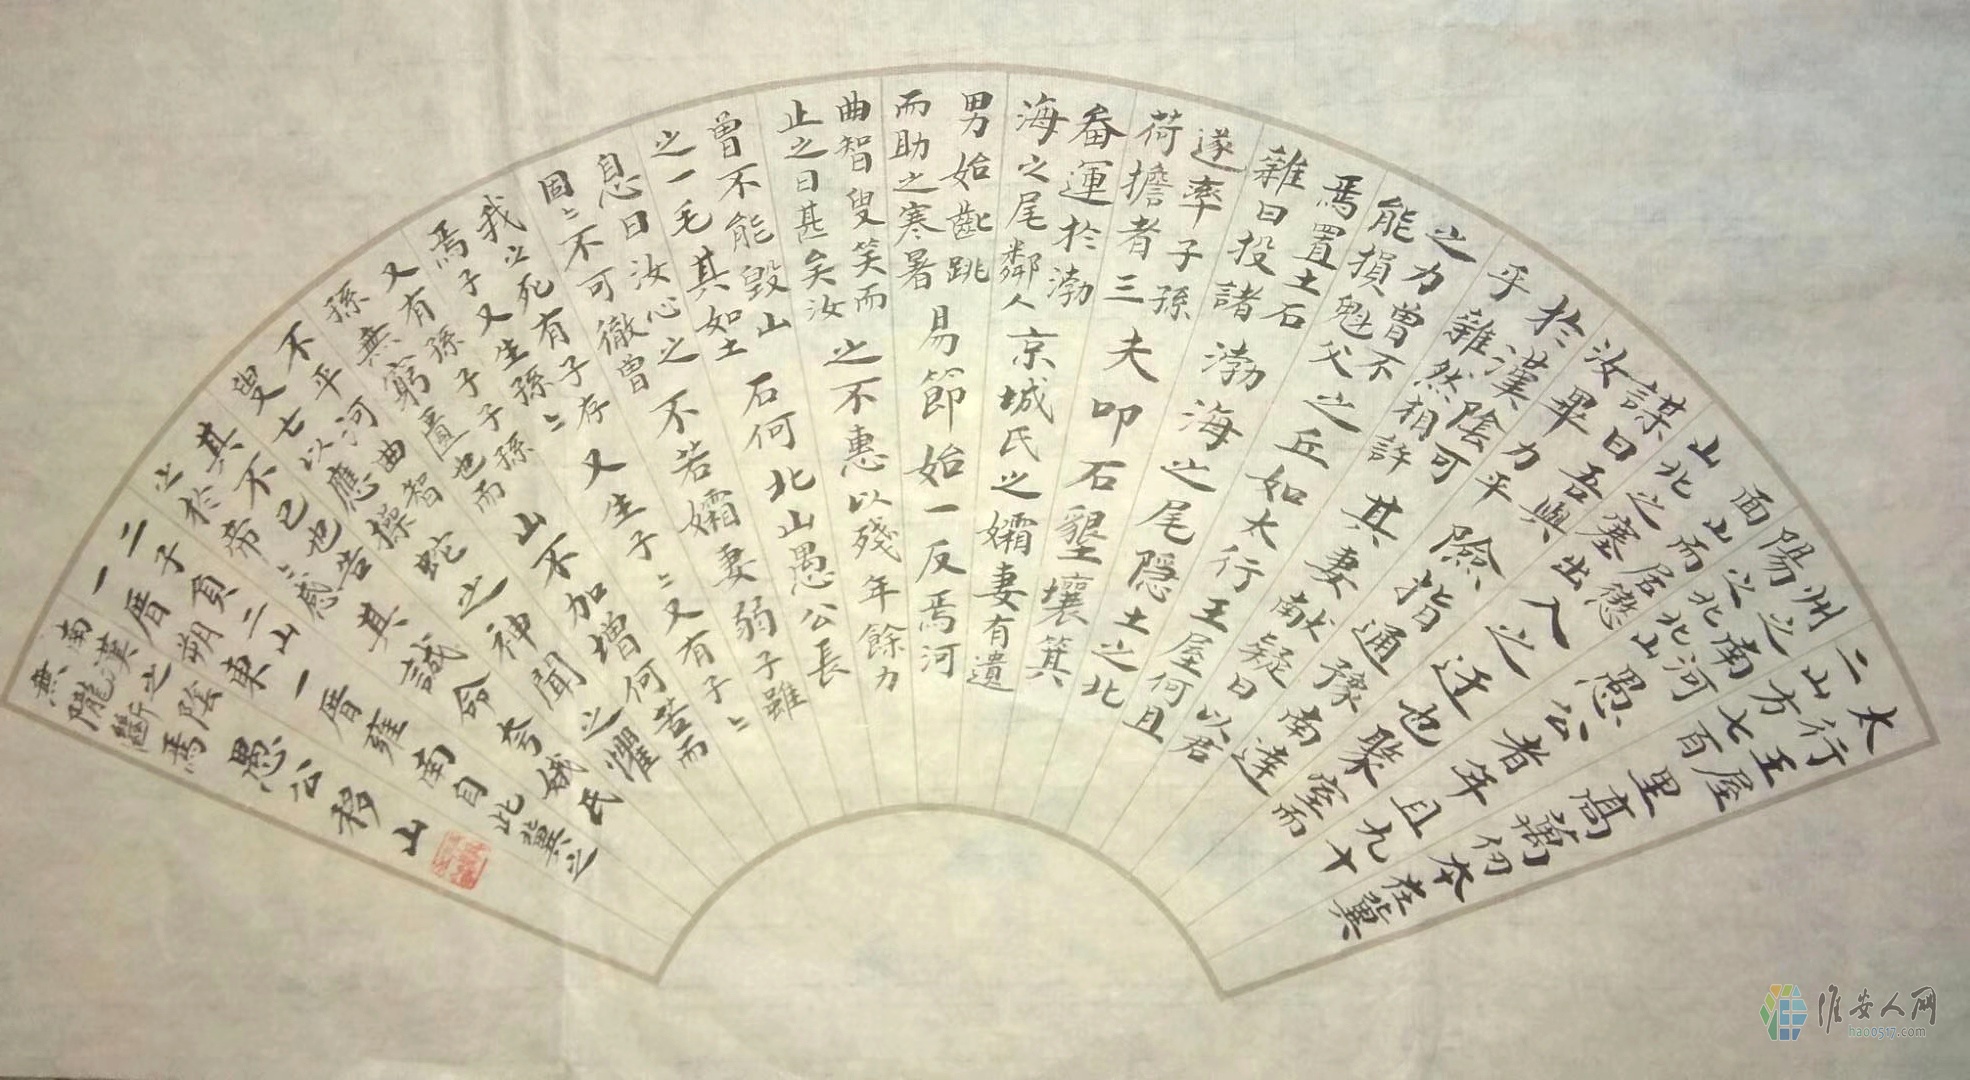 太行王屋
二山方七百里高萬仞本在冀
州之南河
陽之北北山愚公者年且九十
面山而居懲
山北之塞出入之迂也聚室而
謀曰吾與
汝畢力平險指通豫南達
於漢陰可
乎雜然相許其妻献疑曰以君
之力曾不
能損魁父之丘如太行王屋何且
焉置土石
雜曰投諸渤海之尾隱土之北
遂率子孫
荷擔者三夫叩石墾壤箕
畚運於渤
海之尾鄰人京城氏之孀妻有遺
男始齔跳
而助之寒暑易節始一反焉河
曲智叟笑而
止之曰甚矣汝之不惠以殘年餘力
曾不能毀山
之一毛其如土石何北山愚公長
息曰汝心之
固〻不可徹曾不若孀妻弱子雖
我之死有子存
焉子又生孫〻又生子〻又有子〻
又有孫子子孫
孫無窮匱也而山不加增何苦而
不平河曲智
叟亡以應操蛇之神聞之懼
其不已也告
之於帝〻感其誠命夸娥氏
二子負二山
一厝朔東一厝雍南自此冀之
南漢之陰
無隴斷焉
愚公移山
淮安人网
hao0517.com